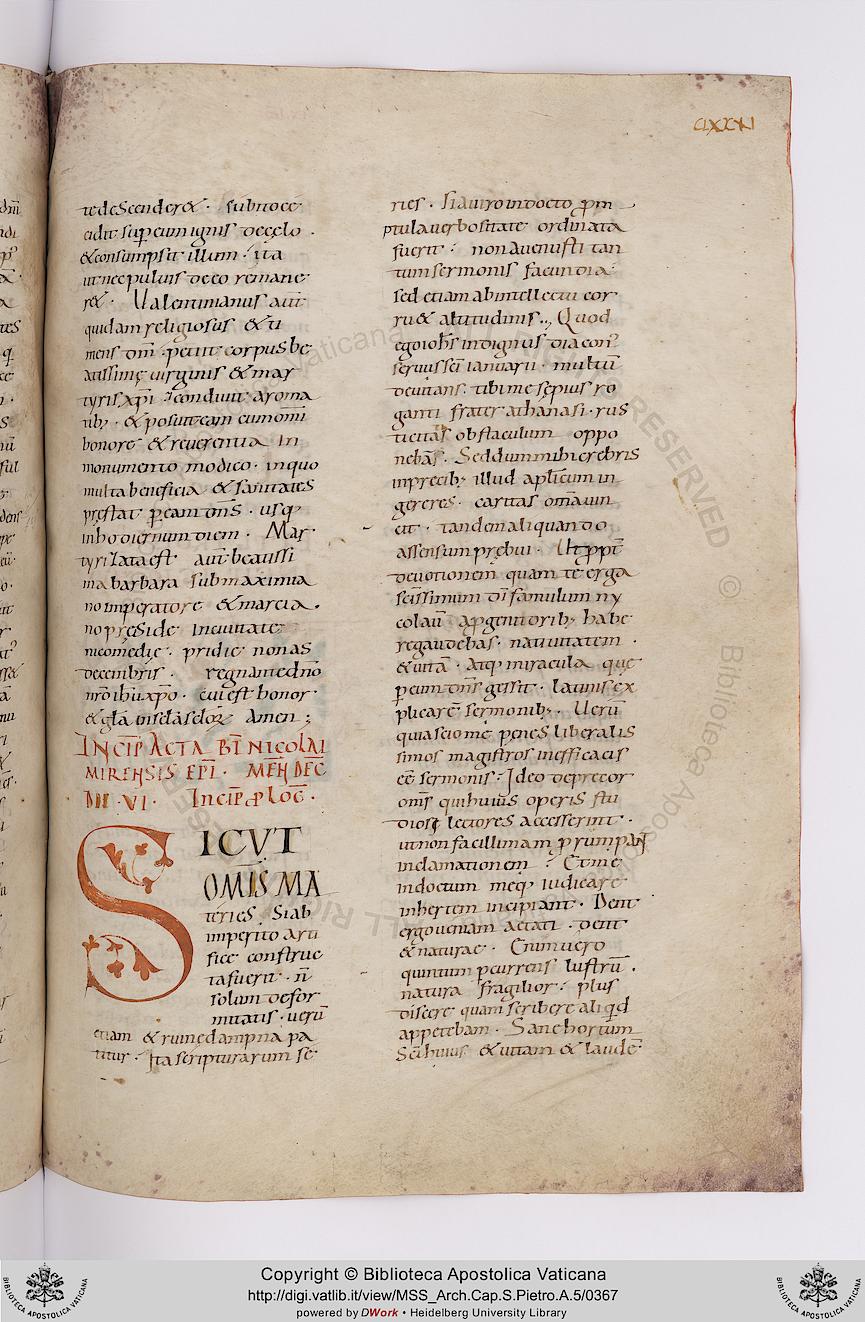 CLXXVI
te descender&. subito ce
cidit sup eum ignis de cęlo.
& consumpsit illum. ita
ut nec puluis de eo remane
r&. Ualentinianus aut
quidam religiosus & ti
mens dm̄. petiit corpus be
atissimę uirginis & mar
tyris xp̄i. & condiuit aroma
tib;. & posuit eam cum omī
honore & reuerentia In
monumento modico. in quo
multa beneficia & sanitates
pręstat p eam dn̄s. usq;
in hodiernum diem. Mar
tyrizata est aut beatissi
ma barbara sub maximia
no imperatore & marcia.
no pręside In ciuitate
nicomedię. pridie nonas
decembris. regnante dn̄o
nr̄o ihū xp̄o. cui est honor
& gl̄a in sc̄la sc̄lor̄ Amen;
INCIP̄ ACTA BT̄I NICOLAI
MIRENSIS EPĪ. MEN̄ DEC̄
DIE. VI. INCIP̄ PLOG̅.
SICVT
OMIS MA
teries Si ab
imperito arti
fice construc
ta fuerit. n̄
solum defor
mitatis. uerū
etiam & ruinę dampna pa
titur. Ita scripturarum se
ries. Si a uiro indocto pm
ptula uerbositate ordinata
fuerit. non a uenusti tan
tum sermonis facundia
sed etiam ab intellectui cor
ru& altitudinis. Quod
ego ioh̄s indignus diacon'
seruus sc̄i ianuarii. multū
deuitans. tibi me sępius ro
ganti frater athanasi. rus
ticitas obstaculum oppo
nebas. Sed dum mihi crebris
in precib; illud aplicum in
gereres. caritas om̄a uin
cit. tandem aliquando
assensum prębui. Ut ppt
deuotionem quam te erga
sc̄issimum dī famulum ny
colaū a pgentiorib; habe
re gaudebas. natiuitatem.
& uitā. atq; miracula quę
p eum dn̄s gessit. latinis ex
plicarē sermonib;. Uerū
quia scio me penes liberalis
simos magistros inefficacis
eē sermonis. Ideo deprecor
om̄s qui huius operis stu
diosę lectores accesserint.
ut non facillimam prumpant
in clamationem. Et me
indoctum meq; iudicare
inhertem incipiant. Dent
ergo ueniam aetati. dent
& naturae. Cum uero
quintum pcurrens lustrū.
natura fragilior. plus
discere quam scribere aliqd
appetebam. Sane hortum
Sc̄i huius & uitam & laude
Copyright © Biblioteca Apostolica Vaticana
http://digi.vatlib.it/view/MSS_Arch.Cap.S.Pietro.A.5/0367
powered by DWork • Heidelberg University Library